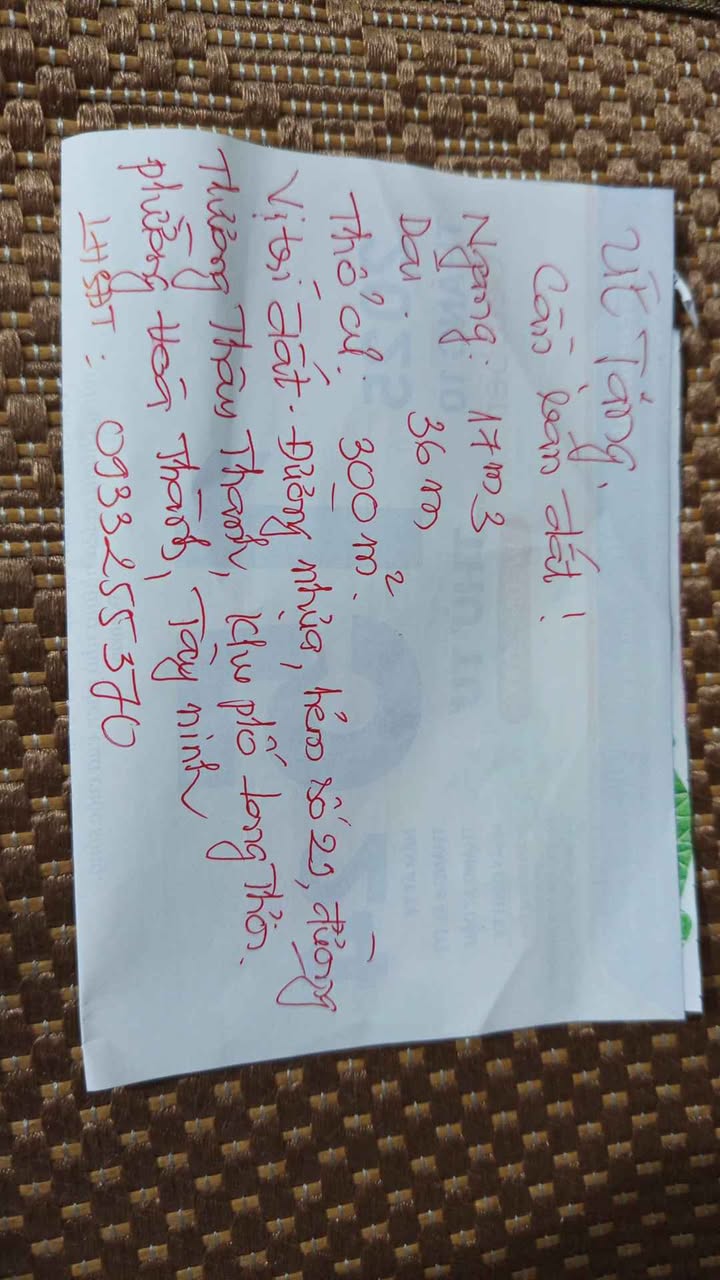 Út Tặng.
Cần bán đất!
Ngang: 17m3
Dài. 36m,
Thổ cư. 300m².
Vị trí đất. Đường nhựa, hẻm số 29, đường
Thường Thâu Thanh, khu phố Long Thời.
phường Hoà Thành, Tây ninh
LHSĐT: 0933255370